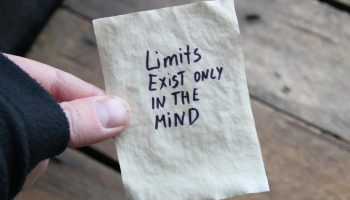 Limits
EXIST ONLY
IN THE
MiND